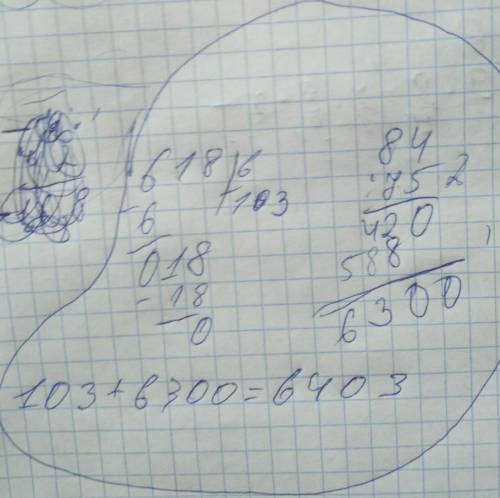 618 | 6
- 6 103
018
- 18
0
84
75 2
420
588
6300
103 + 6300 = 6403